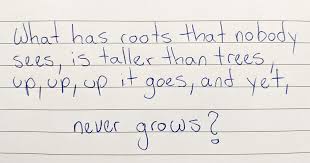 What has roots that nobody
sees, is taller than trees,
up, up, up it goes, and yet,
never grows?